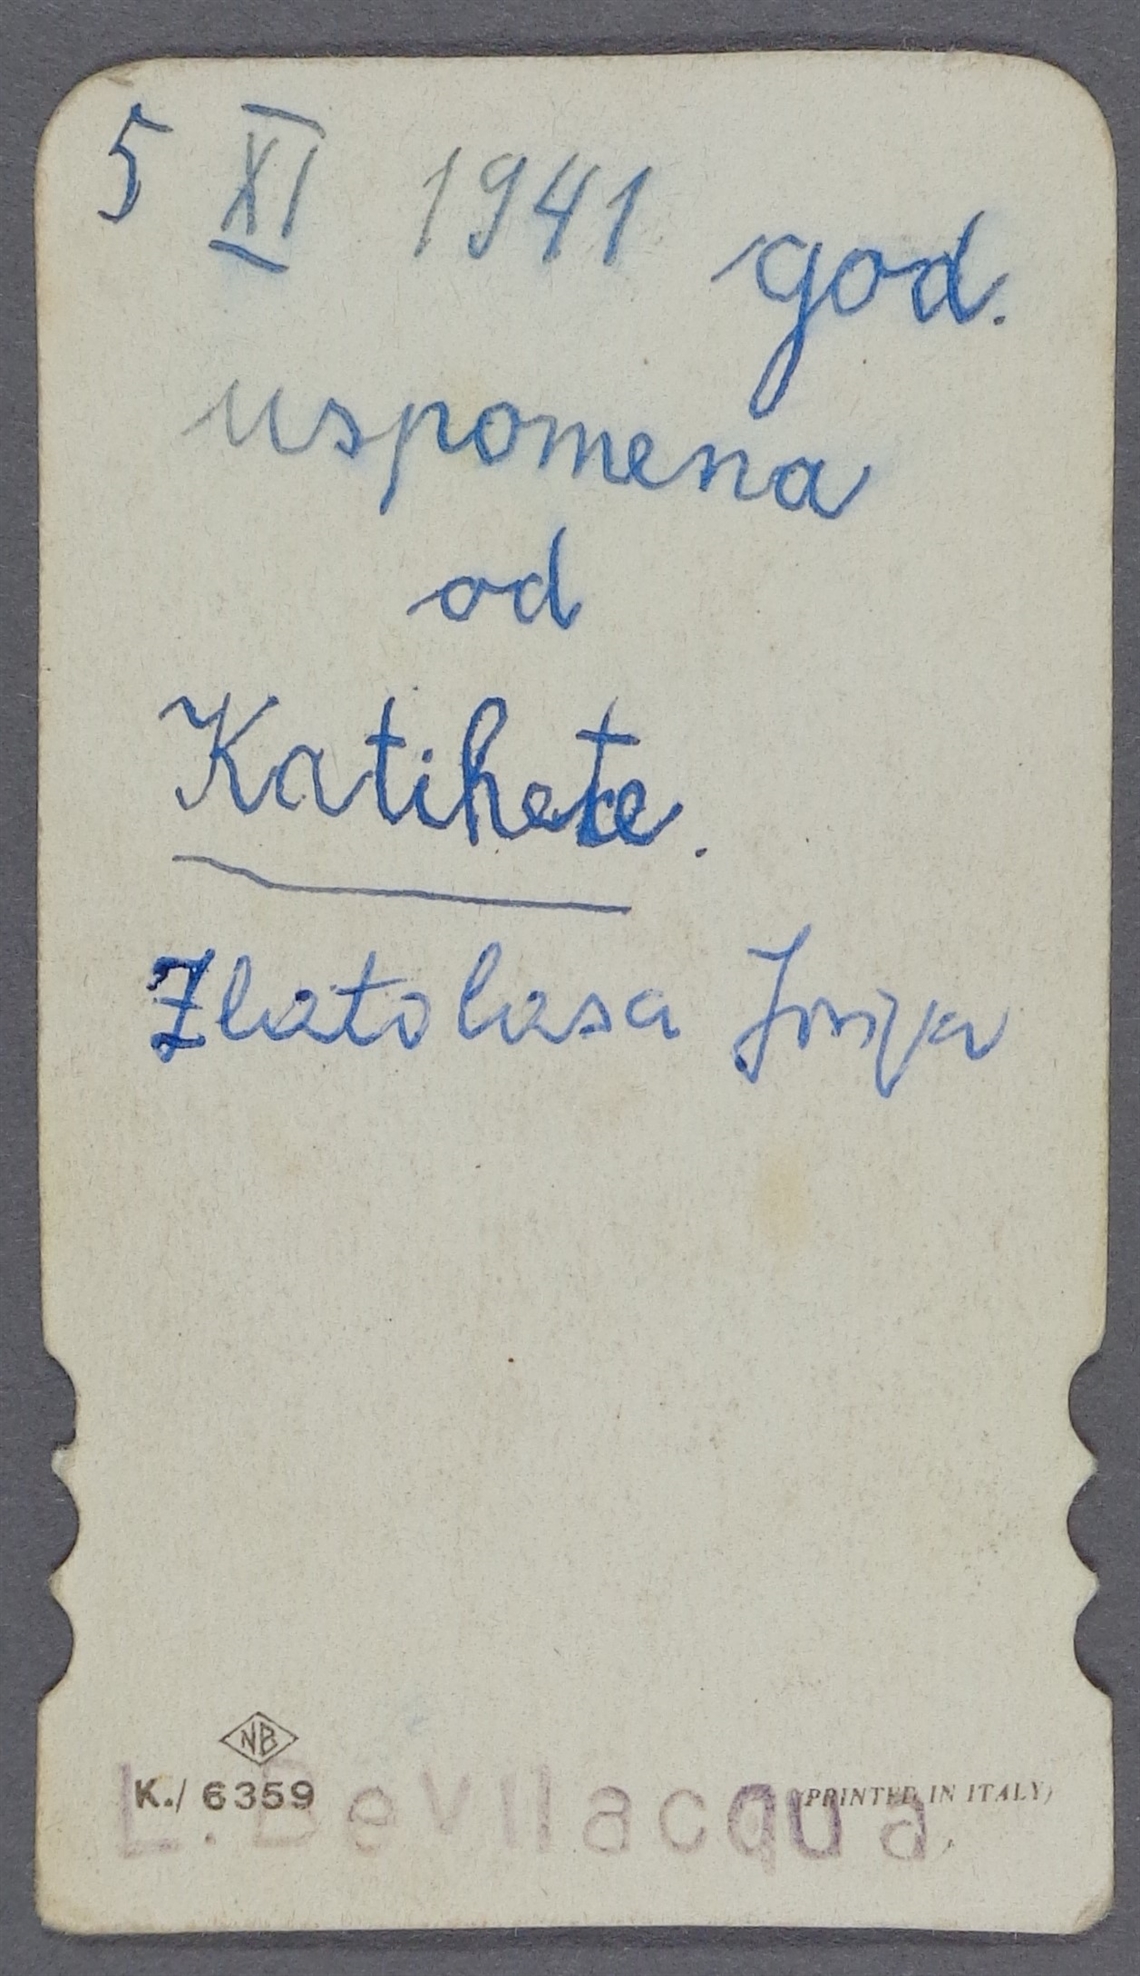 5 XI 1941 god.
uspomena
od
Katihete.
Zlatolasa
NB
K./ 6359
(PRINTED IN ITALY)
L. Bevilacqua